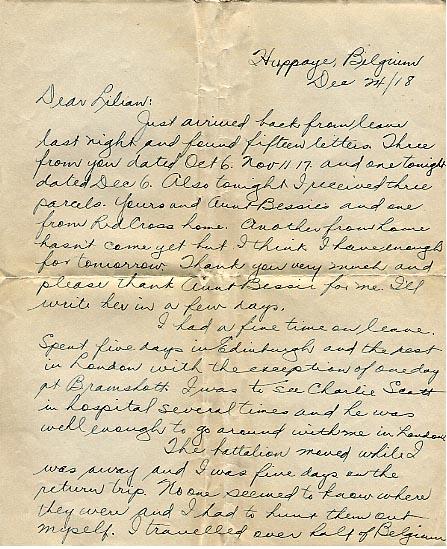 Huppaye, Belgium
Dec 24/18
Dear Lilian:
Just arrived back from leave
last night and found fifteen letters. Three
from you dated Oct 6. Nov 11 17. and one tonight
dated Dec 6. Also tonight I received three
parcels. Yours and Aunt Bessie's and one
from Red Cross home. Another from home
hasn't come yet but I think I have enough
for tomorrow. Thank you very much and
please thank Aunt Bessie for me. I'll
write her in a few days.
I had a fine time on leave.
Spent five days in Edinburgh and the rest
in London with the exception of one day
at Bramshott. I was to see Charlie Scott
in hospital several times and he was
well enough to go around with me in London.
The battalion moved while I
was away and I was five days on the
return trip. No one seemed to know where
they were and I had to hunt them out
myself. I travelled over half of Belgium